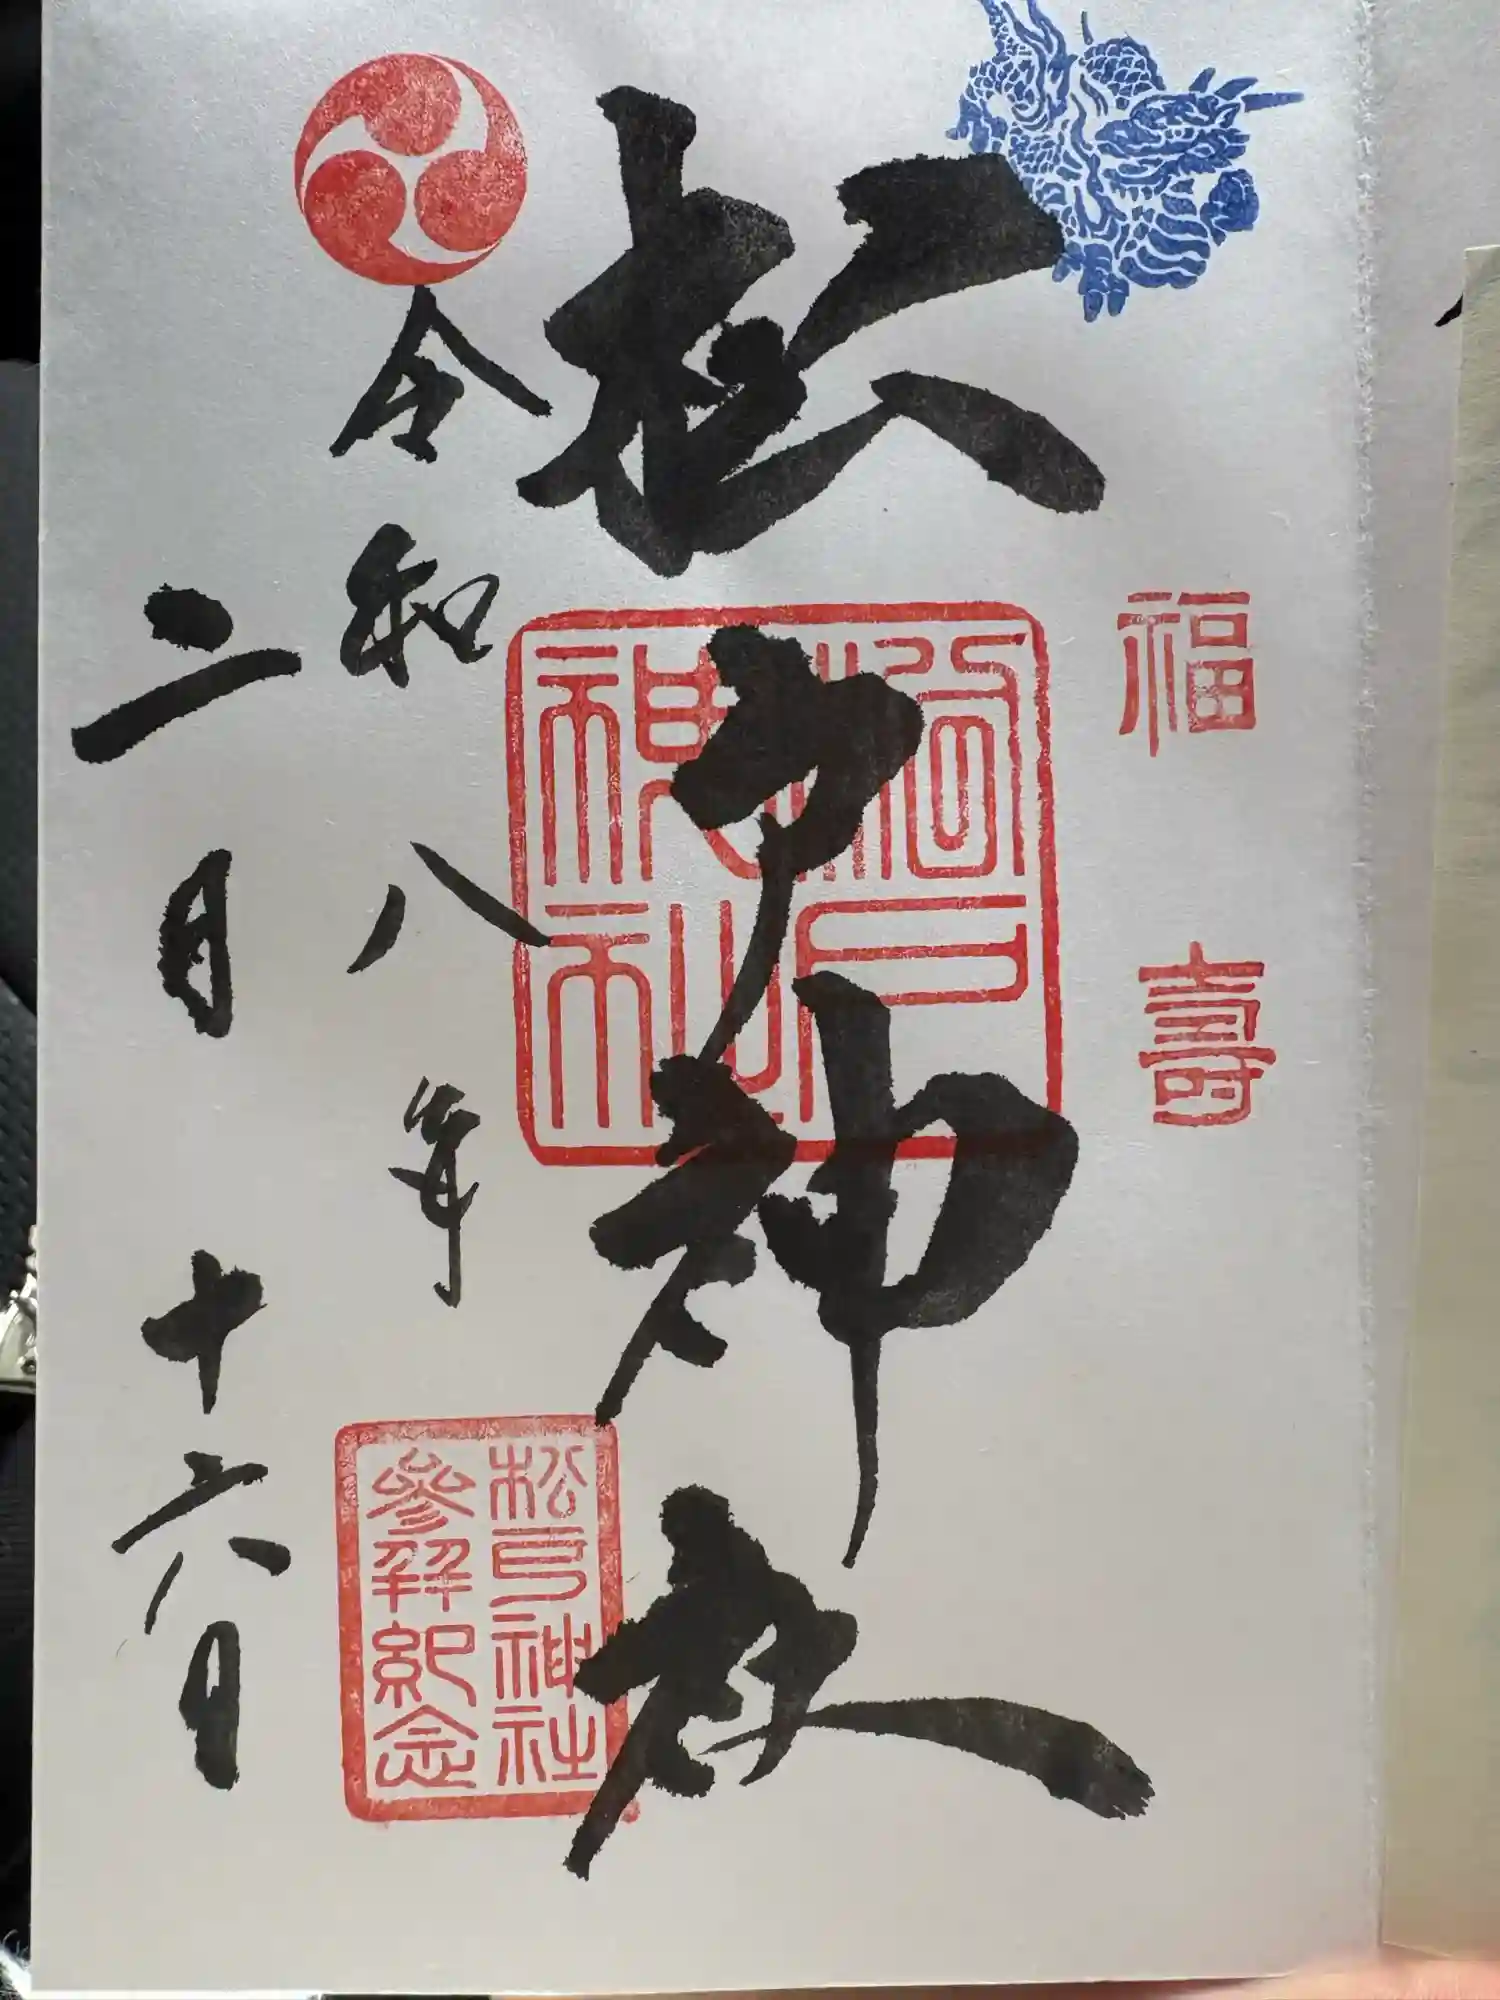 福壽
松戸神社
松戸神社
松戸神社
參拜紀念
令和八年
二月十六日